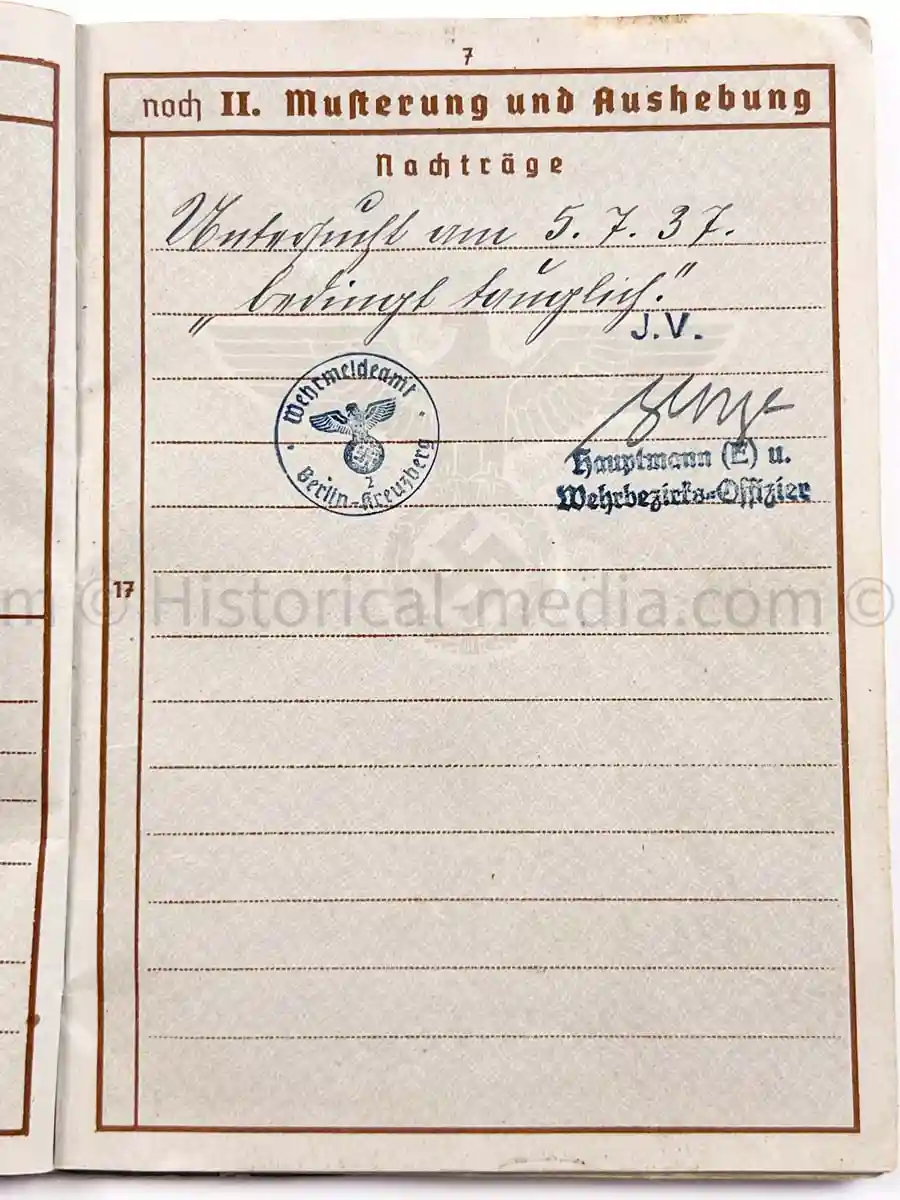 7
noch II. Musterung und Aushebung
Nachträge
Untersucht am 5. 7. 37.
„bedingt tauglich."
J.V.
Wehrmeldeamt
2
Berlin-Kreuzberg
Hauptmann (E) u.
Wehrbezirks-Offizier
17
m © Historical-media.com ©